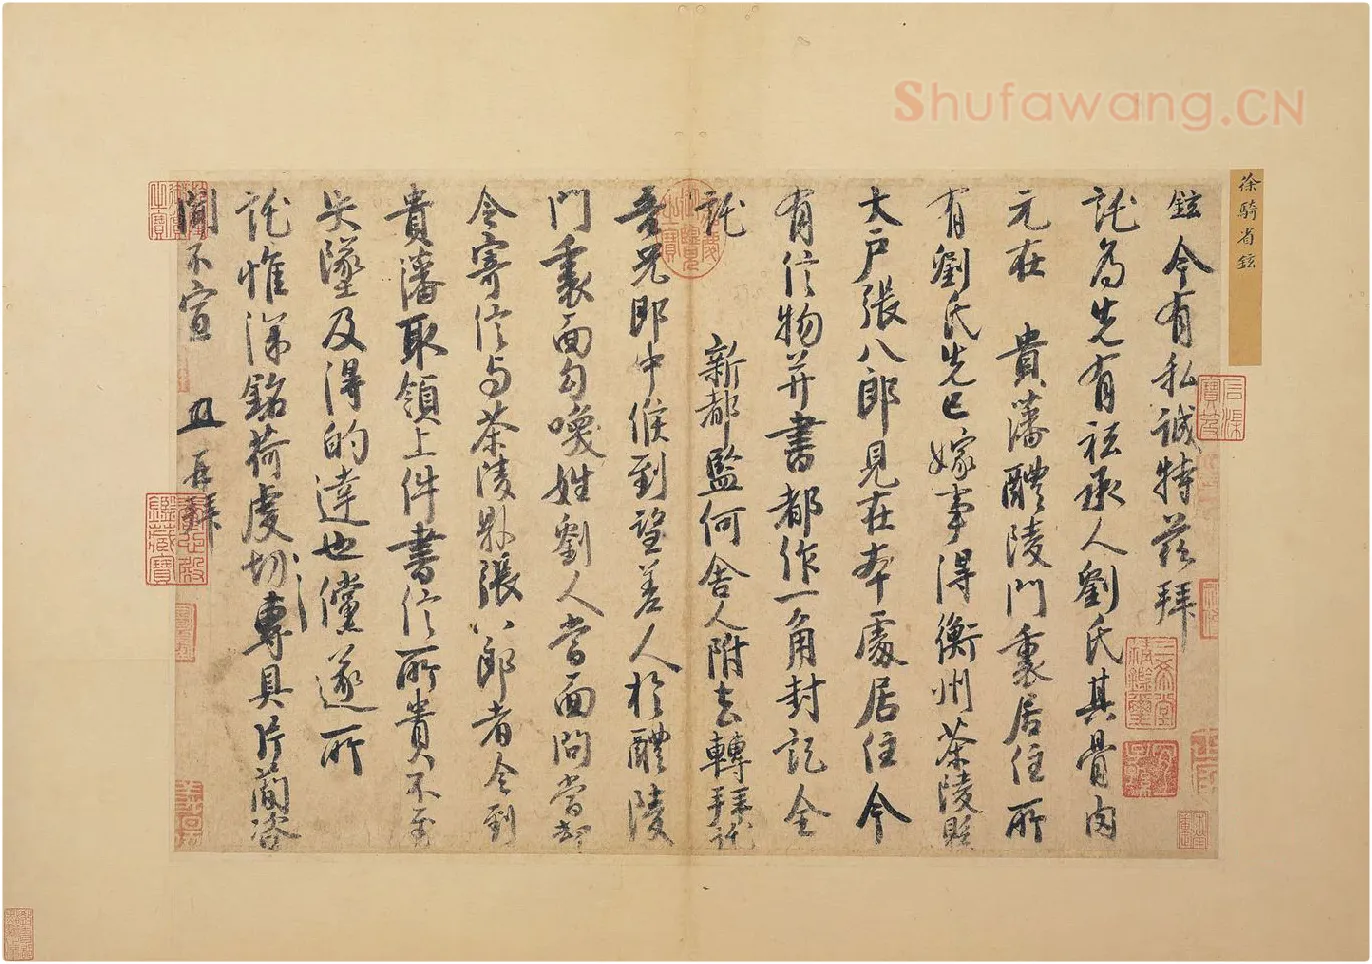 Shufawang.CN
徐騎省鉉
鉉今有私誠特茲拜
託為先有祗承人劉氏其骨肉
元在 貴藩醴陵門裏居住所
有劉氏先已嫁事得衡州茶陵縣
大戶張八郎見在本處居住今
有信物并書都作一角封記全
託 新都監何舍人附去轉拜託
吾兄郎中候到望差人於醴陵
門裏面勾喚姓劉人當面問當却
令寄信与茶陵縣張八郎者令到
貴藩取領上件書信所貴不至
失墜及得的達也儻遂所
託惟深銘荷虔切專具片簡咨
聞不宣 再拜